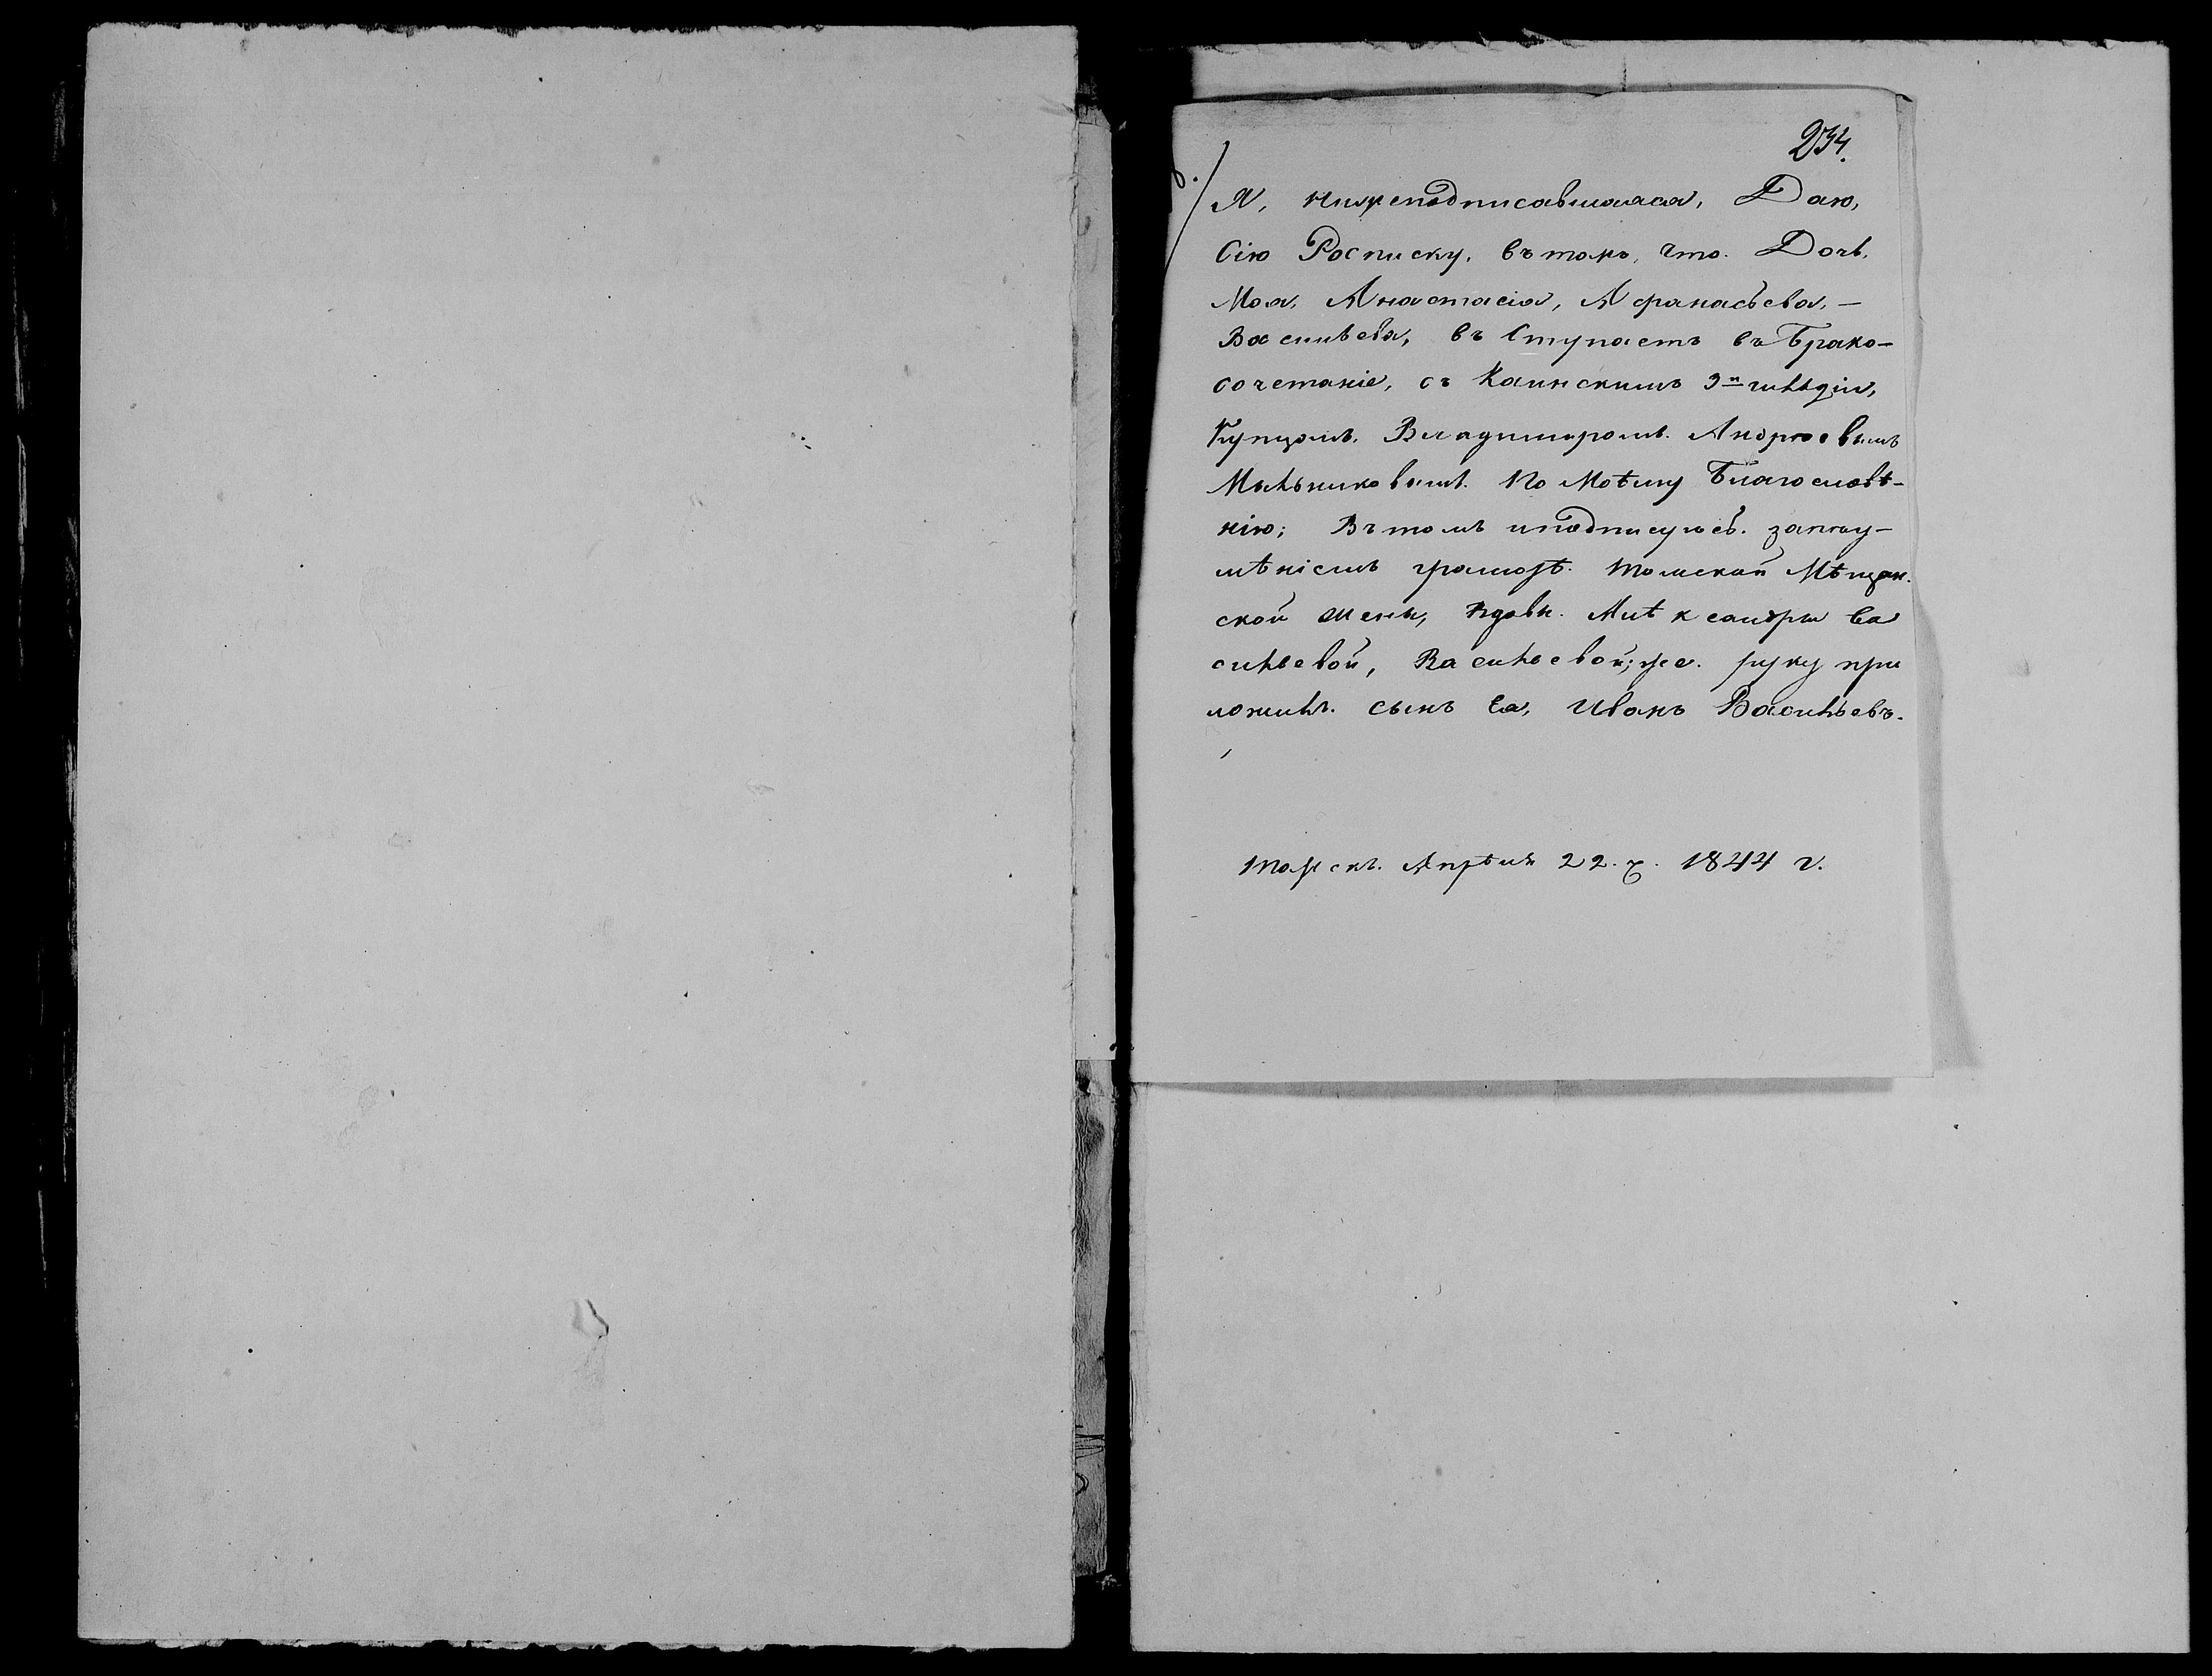 234.
Я, нижеподписавшаяся, Даю,
Сію Росписку, въ томъ, что. Дочь.
Моя, Анастасія, Афанасьева, —
Васильева, въ Ступаетъ въ Брако-
сочетаніе, съ Каинскимъ 3й гильдіи,
Купцомъ. Владимиромъ. Андреевымъ
Мѣльниковымъ. По Моѣму Благословѣ-
нію; Въ томъ и подписуюсь. за неу-
мѣніемъ грамотѣ. Томской Мѣщан.
ской жены, вдовы. Алѣксандры Ва
сильевой, Васильевой; же. руку при
ложилъ. сынъ Ея, Иванъ Васильевъ.
Томскъ. Апрѣля 22. ч. 1844 г.